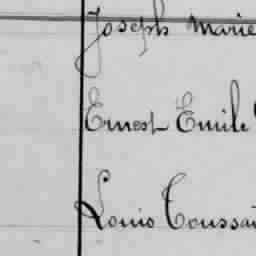 Joseph Marie
Ernest Emile
Louis Toussai